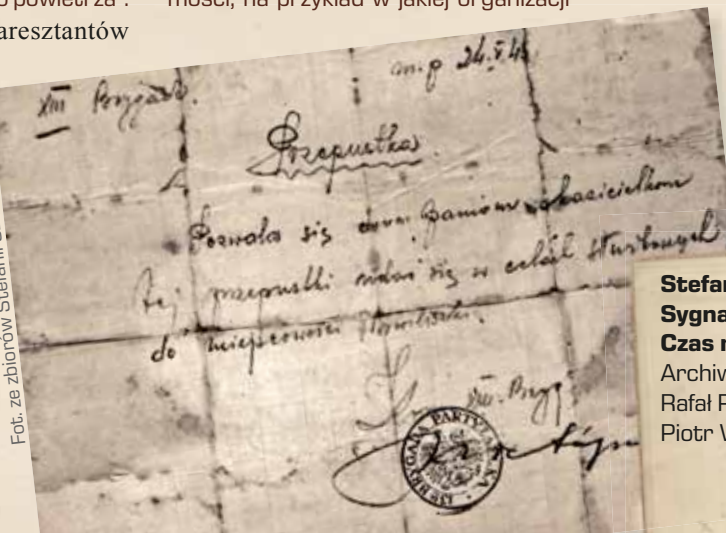 o powietrza".
mości, na przykład w jakiej organizacji
aresztantów
Fot. ze zbiorów Stefanii
XIII Brygada.
m.p 24.V.45
Przepustka
Pozwala się dwom Paniom okazicielkom
tej przepustki udać się w celach służbowych
do miejscowości
XIII. Bryg
BRYGADA PARTYZ
Stefan
Sygna
Czas n
Archiw
Rafał P
Piotr W